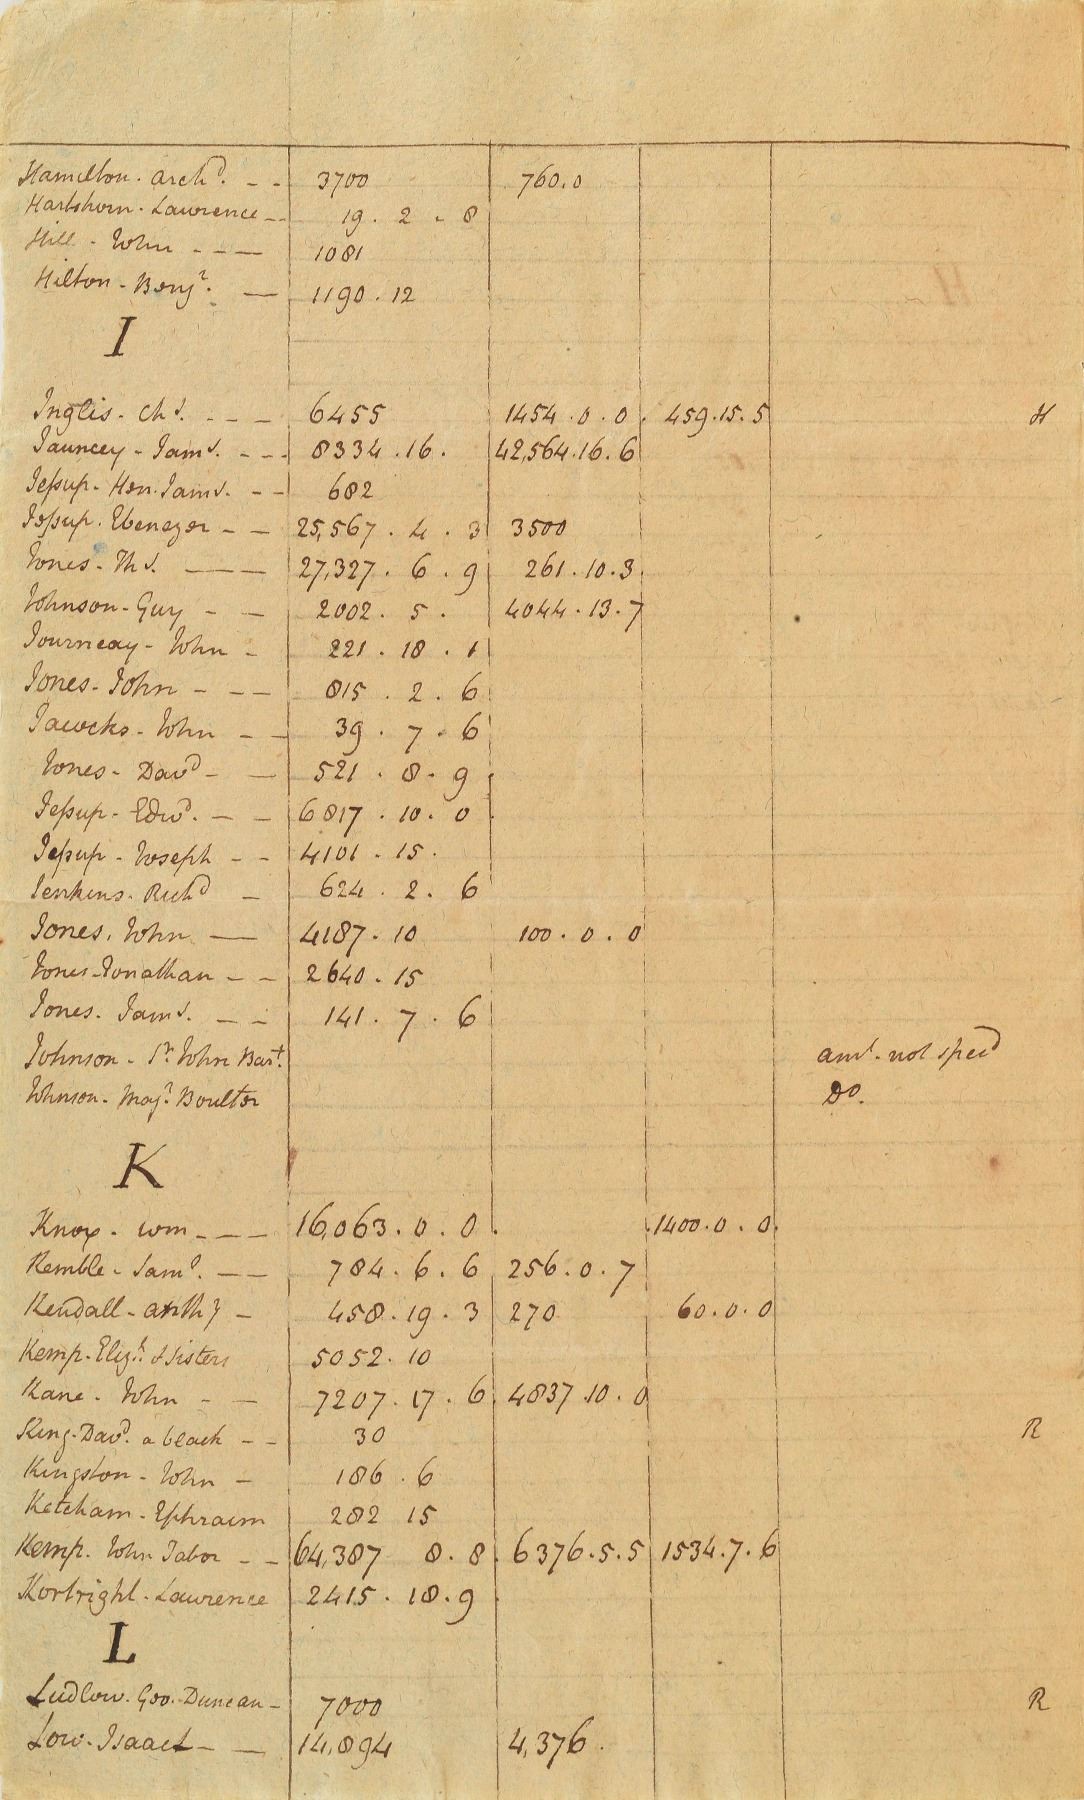 Hamilton. Archd. - - 3700 760.0
Hartshorn. Lawrence - - 19. 2. 8
Hill. John - - - 1081
Hilton. Benjn. - 1190. 12
I
Inglis. Chs. - - - 6455 1454. 0. 0. 459. 15. 5 H
Jauncey - Jams. - - - 8334. 16. 42,564. 16. 6
Jeſsup. Hen. Jams. - - 682
Jeſsup. Ebenezer - - 25,567. 4. 3 3500
Jones - Ths. - - - 27,327. 6. 9 261. 10. 3
Johnson - Guy - - 2002. 5. 4044. 13. 7
Journeay - John - 221. 18. 1
Jones - John - - - 815. 2. 6
Jawcks - John - - 39. 7. 6
Jones - Davd - - 521. 8. 9
Jeſsup - Edwd. - - 6817. 10. 0
Jeſsup - Joseph - - 4101. 15.
Jenkins. Richd - 624. 2. 6
Jones. John - 4187. 10 100. 0. 0
Jones - Jonathan - - 2640. 15
Jones. Jams. - - 141. 7. 6
Johnson - Sr. John Bart. amt. not specd
Johnson - Majr. Boulter Do.
K
Knox - Wm - - - 16,063. 0. 0. 1400. 0. 0
Kemble - Saml. - - 784. 6. 6 256. 0. 7
Kendall - Anthy - 458. 19. 3 270 60. 0. 0
Kemp - Elizh. & Sisters 5052. 10
Kane - John - - 7207. 17. 6 4837. 10. 0
King - Davd. a black - - 30 R
Kingston - John - 186. 6
Ketcham - Ephraim 282 15
Kemp. John Tabor - - 64,387 8. 8. 6376. 5. 5 1534. 7. 6
Kortright. Lawrence 2415. 18. 9
L
Ludlow. Geo. Duncan - 7000 R
Low. Isaac - - 14,894 4,376.